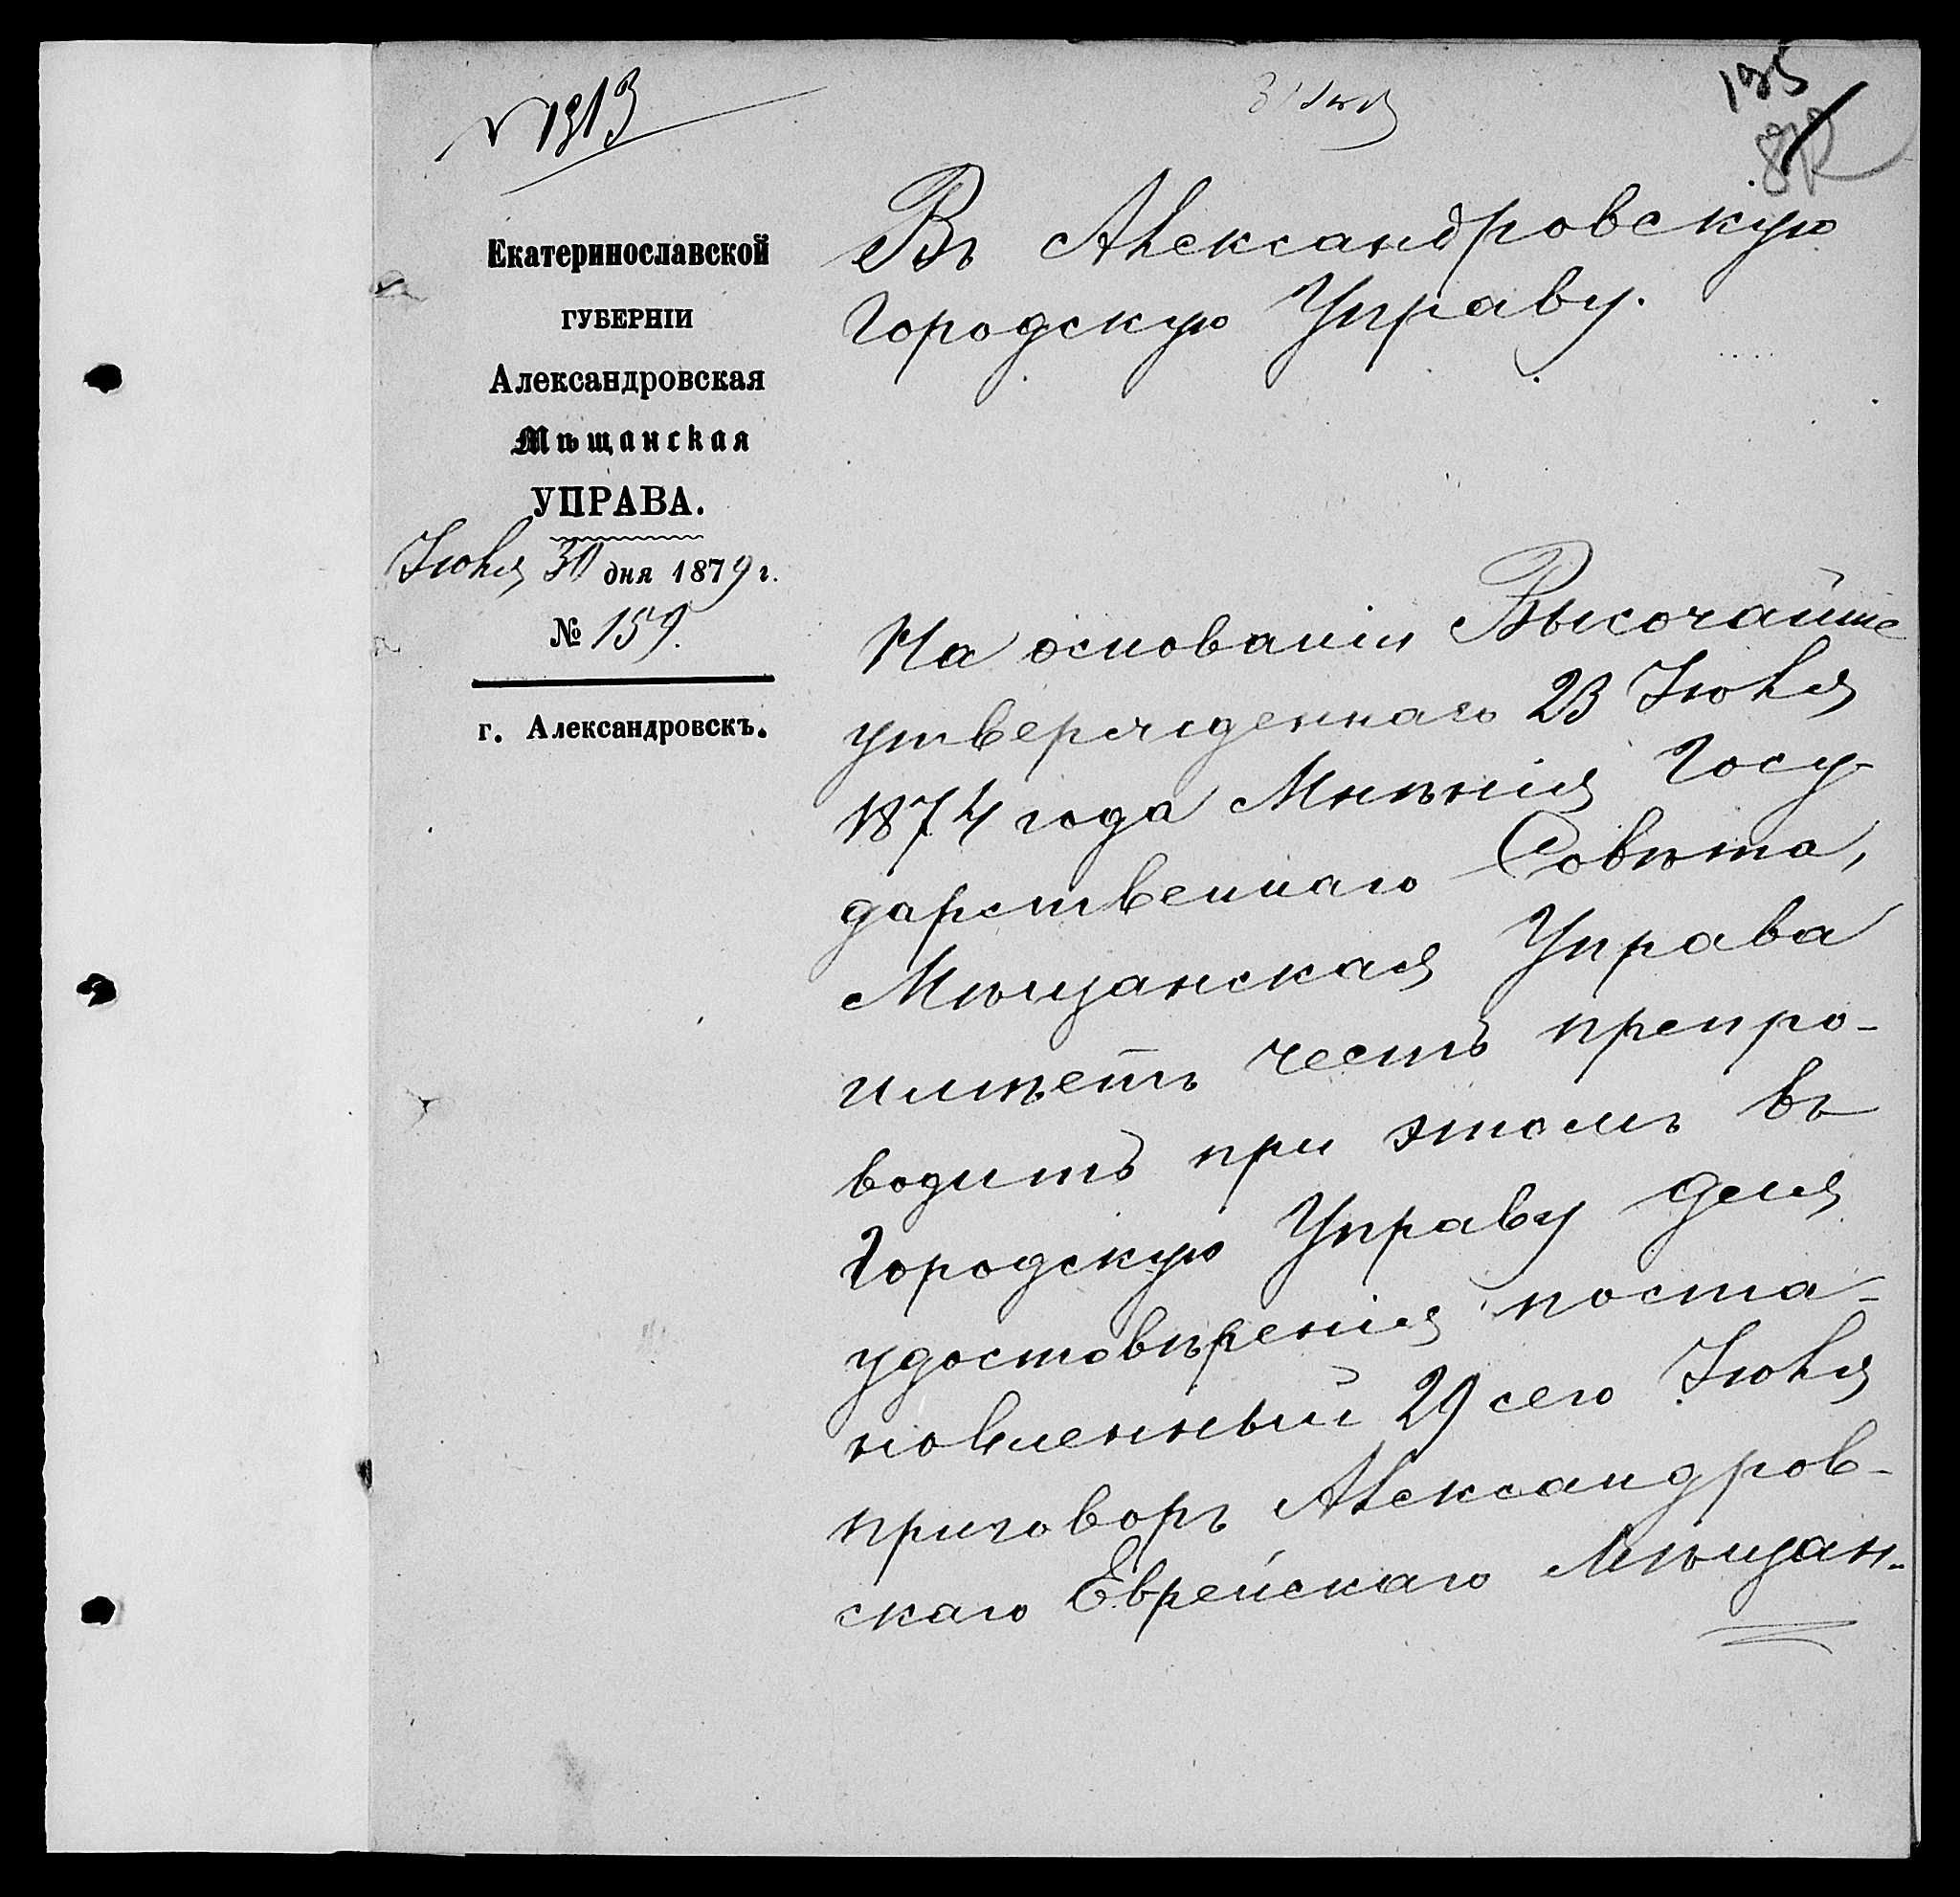 № 1313
195
Екатеринославской
ГУБЕРНІИ
Александровская
Мѣщанская
УПРАВА.
Іюля 30 дня 1879 г.
№ 159.
г. Александровскъ.
Въ Александровскую
Городскую Управу.
На основаніи Высочайше
утвержденнаго 23 Іюля
1874 года Мнѣнія Госу-
дарственнаго Совѣта,
Мѣщанская Управа
имѣетъ честь препро-
водить при этомъ въ
Городскую Управу для
удостовѣренія поста-
новленный 29 сего Іюля
приговоръ Александров-
скаго Еврейскаго Мѣщан-